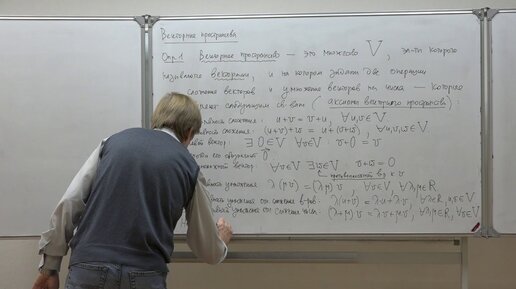 Векторные пространства
Опр.1 Векторное пространство — это множество V, эл-ты которого
называются векторами, и на котором заданы две операции
сложение векторов и умножение векторов на числа — которые
следующим св-вам (аксиомы векторного пространства):
сложения: u+v = v+u, ∀u,v∈V
сложения: (u+v)+w = u+(v+w), ∀u,v,w∈V
вектор: ∃ 0∈V ∀v∈V: v+0 = v
его обозначают
вектор: ∀v∈V ∃w∈V: v+w = 0
к v
умножения: λ(μv) = (λμ)v, ∀v∈V, ∀λ,μ∈R
умножения отн. сложения в-ров: λ(u+v) = λu+λv, ∀λ∈R, u,v∈V
умножения отн. сложения чисел: (λ+μ)v = λv+μv, ∀λ,μ∈R, ∀v∈V